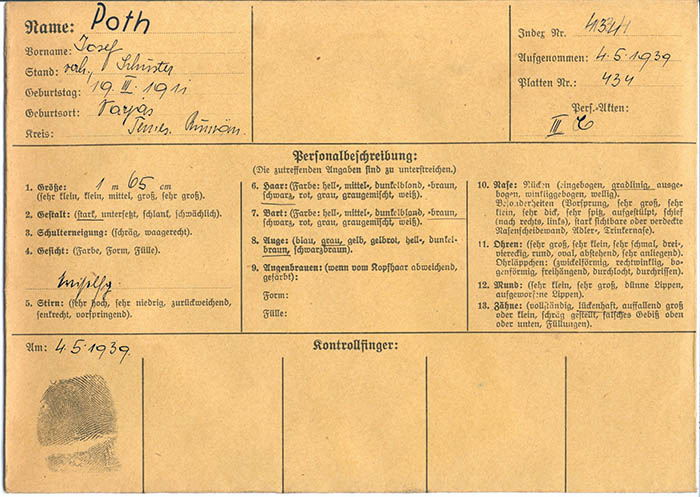 Name: Poth
Vorname: Josef
Stand: verh., Schuster
Geburtstag: 19. III. 1911
Geburtsort: Varjas
Kreis: Temes. Rumän.
Index Nr. 4341
Aufgenommen: 4.5.1939
Platten Nr.: 434
Pers.-Akten:
III C
Personalbeschreibung:
(Die zutreffenden Angaben sind zu unterstreichen.)
1. Größe: 1 m 65 cm
(sehr klein, klein, mittel, groß, sehr groß).
2. Gestalt: (stark, untersetzt, schlank, schwächlich).
3. Schulterneigung: (schräg, waagerecht).
4. Gesicht: (Farbe, Form, Fülle).
5. Stirn: (sehr hoch, sehr niedrig, zurückweichend,
senkrecht, vorspringend).
6. Haar: (Farbe: hell-, mittel-, dunkelblond, -braun,
schwarz, rot, grau, graugemischt, weiß).
7. Bart: (Farbe: hell-, mittel-, dunkelblond, -braun,
schwarz, rot, grau, graugemischt, weiß).
8. Auge: (blau, grau, gelb, gelbrot, hell-, dunkel-
braun, schwarzbraun).
9. Augenbrauen: (wenn vom Kopfhaar abweichend,
gefärbt):
Form:
Fülle:
10. Nase: Rücken (eingebogen, gradlinig, ausge-
bogen, winkliggebogen, wellig).
Besonderheiten (Vorsprung, sehr groß, sehr
klein, sehr dick, sehr spitz, aufgestülpt, schief
(nach rechts, links), stark sichtbare oder verdeckte
Nasenscheidewand, Adler-, Trinkernase).
11. Ohren: (sehr groß, sehr klein, sehr schmal, drei-,
viereckig, rund, oval, abstehend, sehr anliegend).
Ohrläppchen: (zwickelförmig, rechtwinklig, bo-
genförmig, freihängend, durchlocht, durchrissen).
12. Mund: (sehr klein, sehr groß, dünne Lippen,
aufgeworfene Lippen).
13. Zähne: (vollzählig, lückenhaft, auffallend groß
oder klein, schräg gestellt, falsches Gebiß oben
oder unten, Füllungen).
Am: 4.5.1939.
Kontrollfinger: